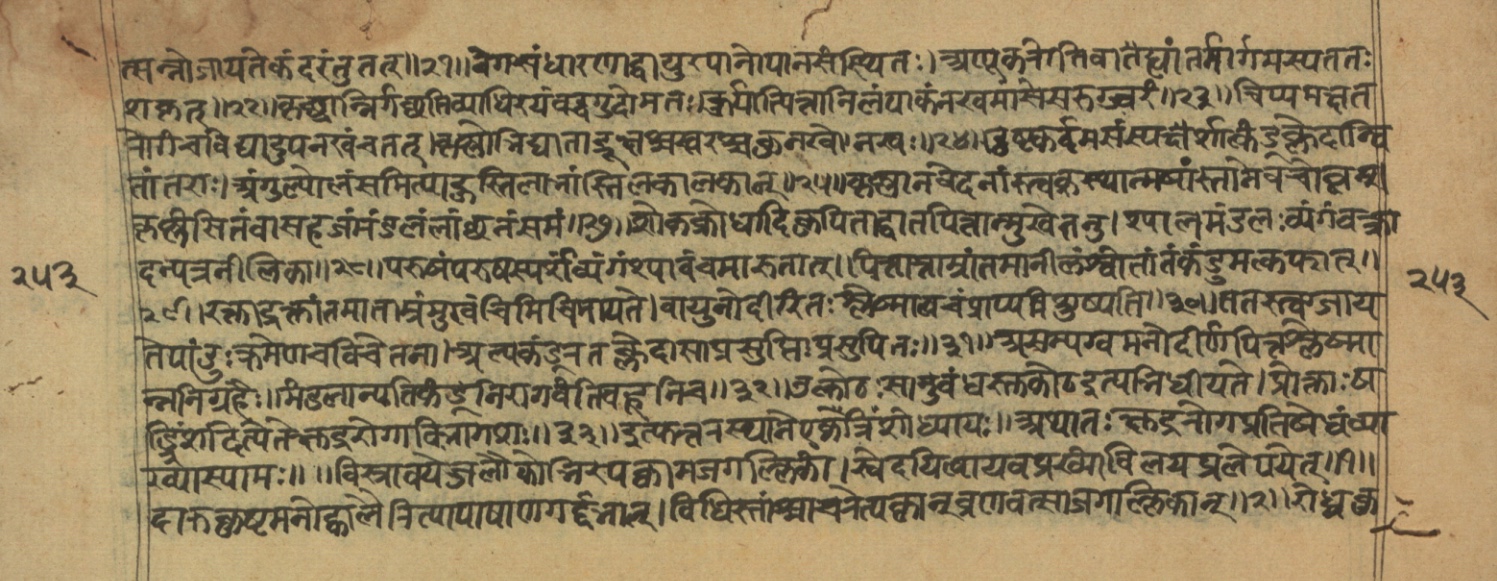 त्सन्नोजायतेकंदरंतुतत्॥२१॥वेगसंधारणाद्वायुरपानोपानसंस्थितः।अणूकरोतिबाह्यांतर्मार्गमस्यततः
शकृत्॥२२॥कृच्छ्रान्निर्गच्छतिव्याधिरयंरुद्धगुदोमतः।कुर्यात्पित्तानिलंपाकंनखमांसेसरुग्ज्वरं॥२३॥चिप्पमक्षत
रोगंचविद्यादुपनखंचतत्।कृष्णोभिघाताद्रूक्षश्चखरश्चकुनखोनखः॥२४॥दुष्टकर्दमसंस्पर्शात्कंडूक्लेदान्वि
तांतराः।अंगुल्योलंसमित्याहुस्तिलाभांस्तिलकालकान्॥२५॥कृष्णानवेदनांस्त्वक्स्थान्मषांस्तानेवचोन्नतान्
कृष्णंसितंवासहजंमंडलंलांछनंसमं॥२७॥शोकक्रोधादिकुपिताद्वातपित्तान्मुखेतनु।श्यामलमंडलःव्यंगंवक्त्रा
दन्यत्रनीलिका॥२८॥परुषंपरुषस्पर्शंव्यंगंश्यावंचमारुतात्।पित्तात्ताम्रांतमानीलंश्वेतांतंकंडुमत्कफात्॥
२९॥रक्ताद्रक्तांतमाताम्रंमुखंचिमिचिमायते।वायुनोदीरितःश्लेष्मात्वचंप्राप्यविशुष्यति॥३०॥ततस्त्वग्जाय
तेपांडुःक्रमेणचविचेतना।अल्पकंडूरतक्लेदासाप्रसुप्तिःप्रसुप्तितः॥३१॥असम्यग्वमनोदीर्णपित्तश्लेष्मा
न्ननिग्रहैः।मंडलान्यतिकंडूनिरागवंतिबहूनिच॥३२॥उत्कोठःसानुबंधस्तुकोठइत्यभिधीयते।प्रोक्ताःष
ट्त्रिंशदित्येतेक्षुद्ररोगाविभागशः॥३३॥इत्युत्तरस्थानेएकत्रिंशोध्यायः॥अथातःक्षुद्ररोगप्रतिषेधंव्या
ख्यास्यामः॥॥विस्रावयेज्जलौकोभिरपक्वामजगल्लिकां।स्वेदयित्वायवप्रख्यांविलयायप्रलेपयेत्॥१॥
दारुकुष्टमनोह्वालैरित्यापाषाणगर्दभात्।विधिस्तांश्चाचरेत्पक्वान्व्रणवत्साजगल्लिकान्॥२॥रोध्रकु
२५३
२५३